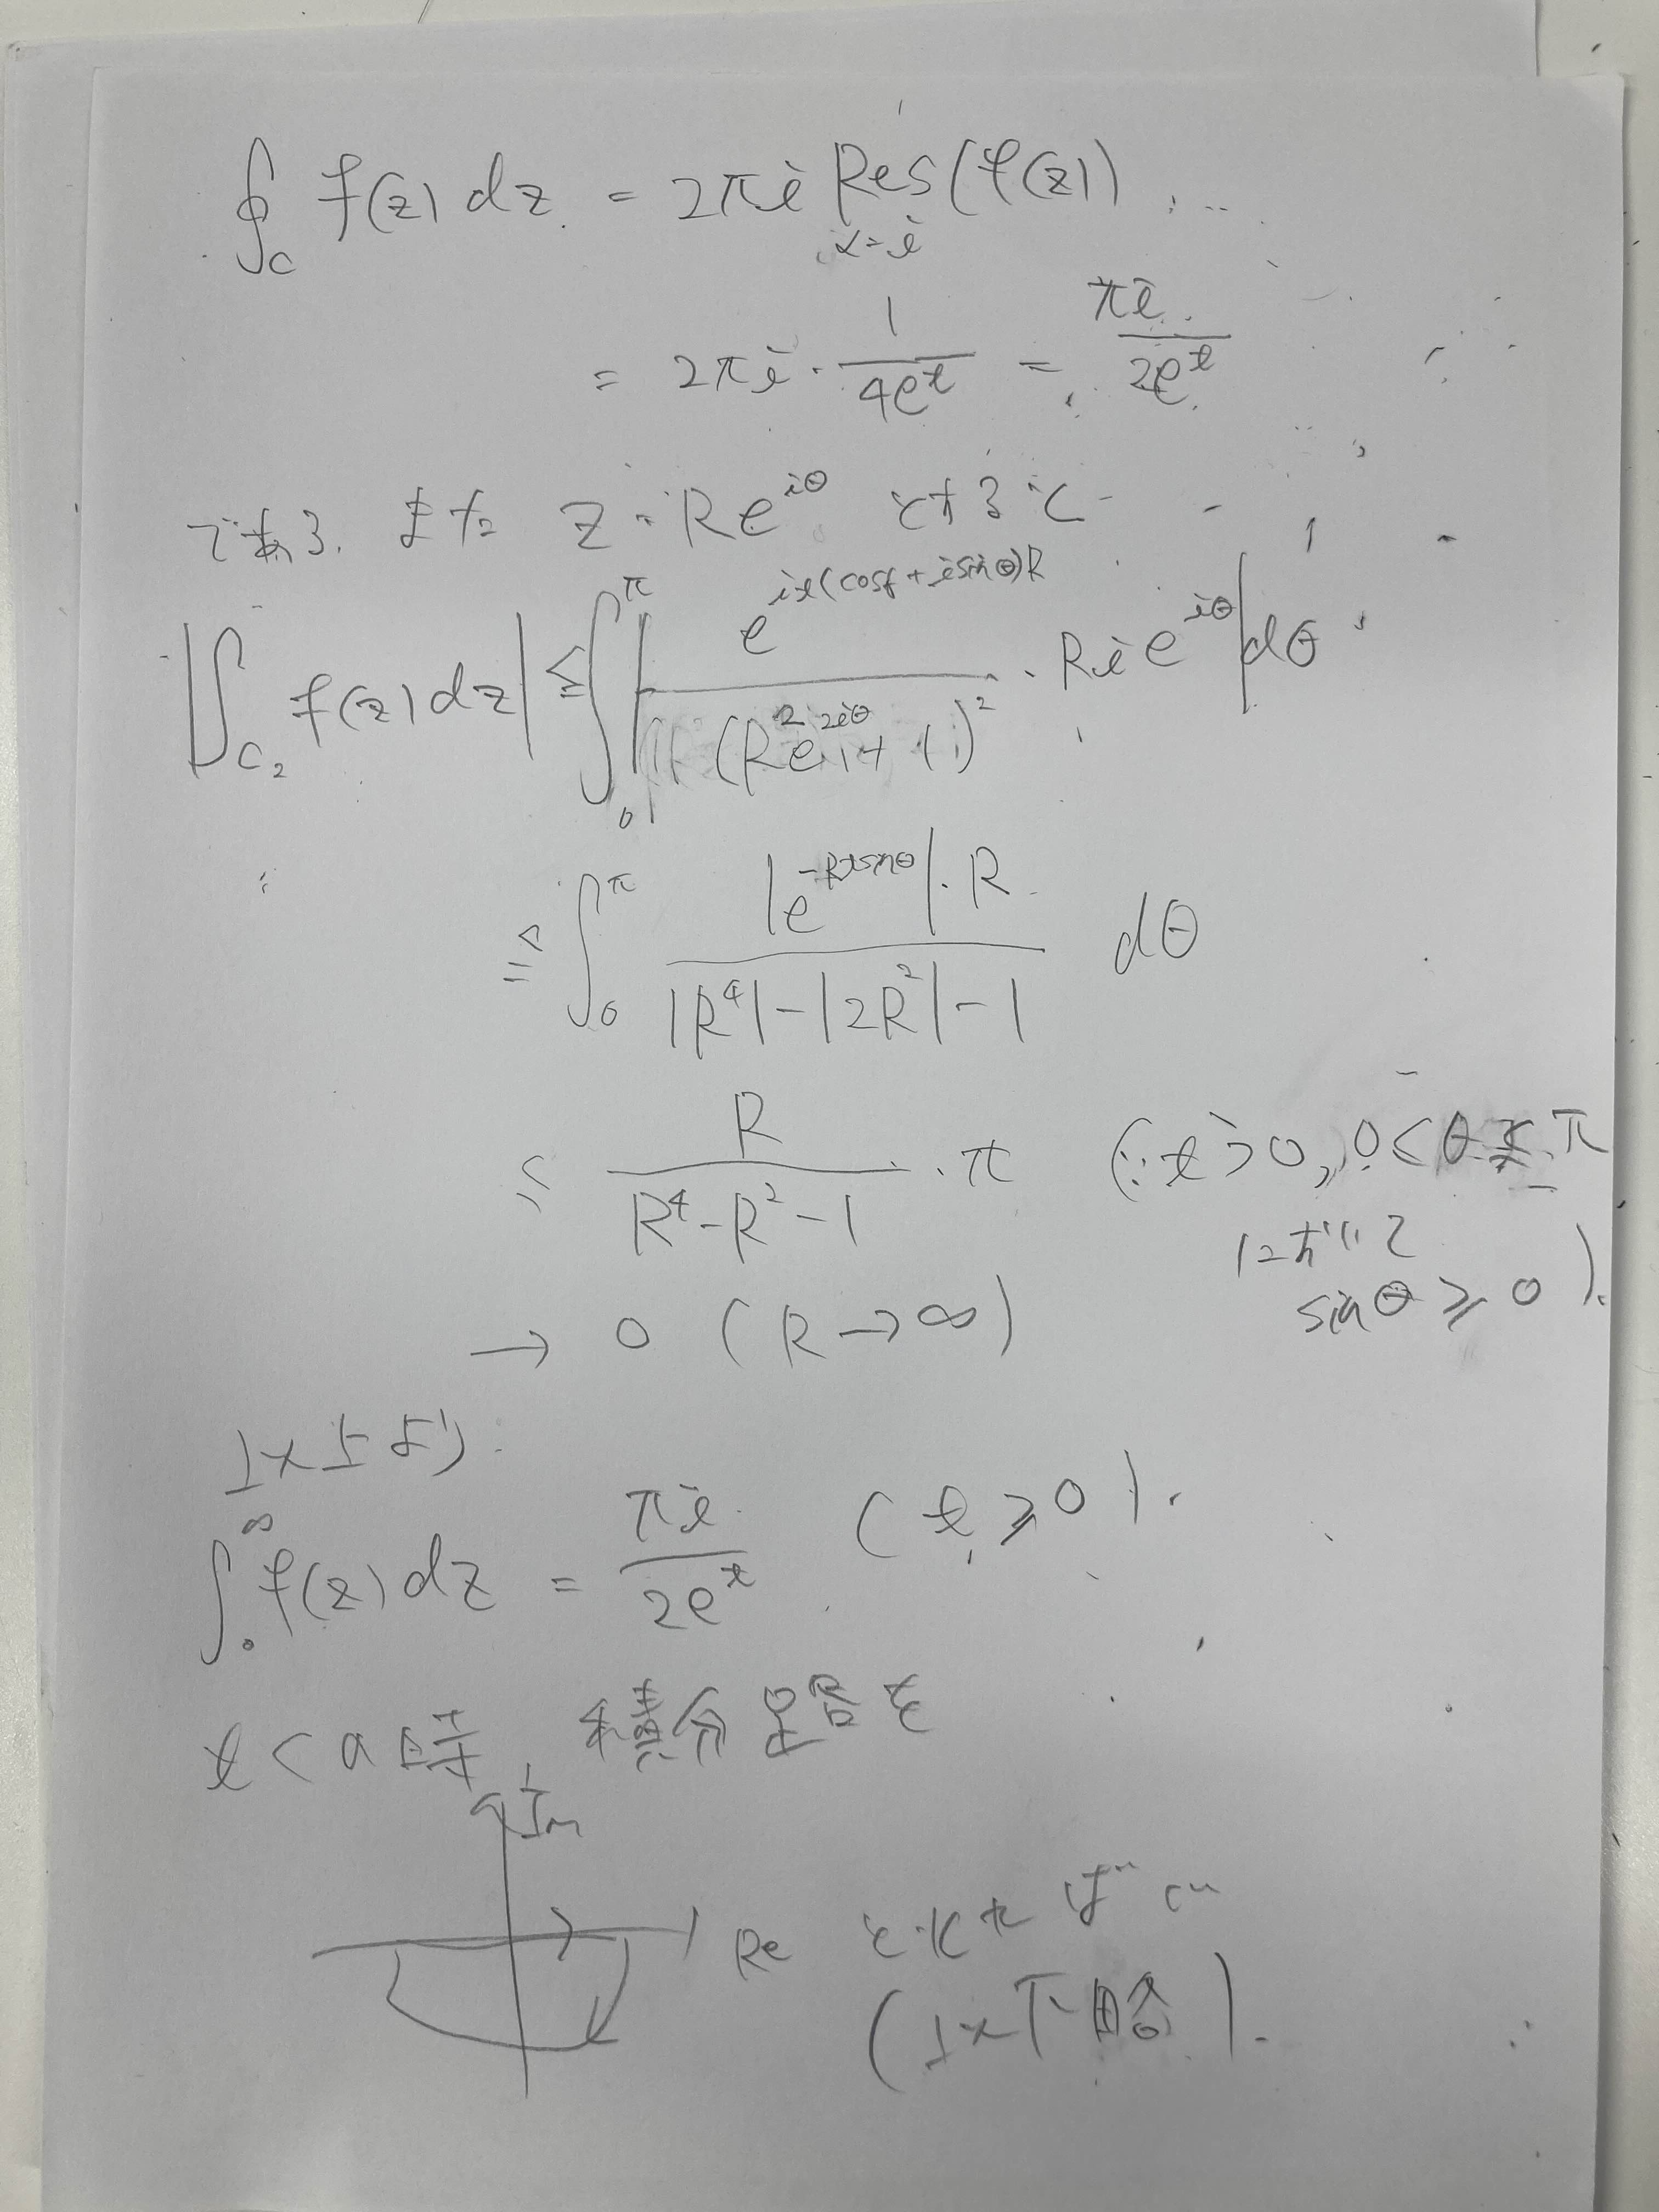 ∮_C f(z) dz = 2πi Res(f(z))
z=i
= 2πi · 1/(4e^t) = πi/(2e^t)
である. また z = Re^{iθ} とすると
|∫_{C_2} f(z) dz| ≦ ∫_0^π | e^{it(cosθ + i sinθ)R} / (R^2 e^{2iθ} + 1)^2 · Ri e^{iθ} | dθ
≦ ∫_0^π |e^{-Rt sinθ}| · R / (|R^4| - |2R^2| - 1) dθ
≤ R / (R^4 - R^2 - 1) · π (∵ t > 0, 0 < θ ≤ π
において
sinθ ≥ 0).
→ 0 (R → ∞)
以上より.
∫_0^∞ f(z) dz = πi/(2e^t) (t ≥ 0).
t < 0 時, 積分経路を
Im
Re ととればい
(以下略).